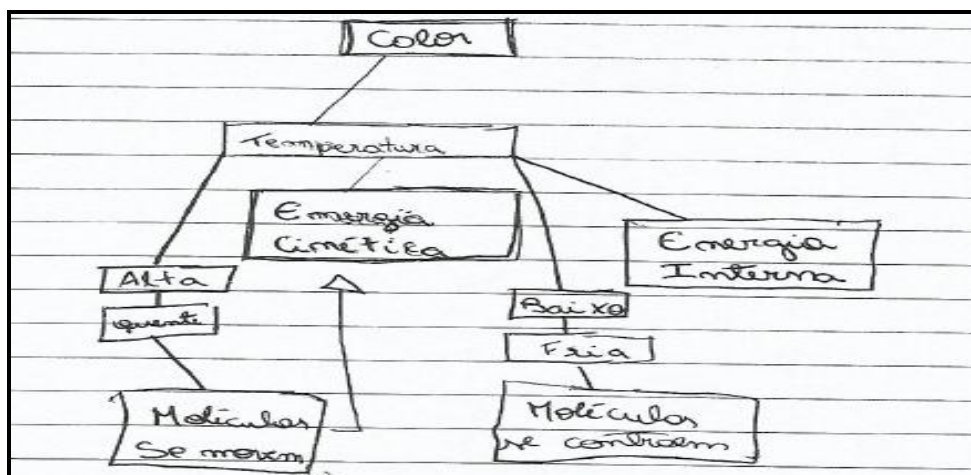 Calor
Temperatura
Energia
Cinética
Energia
Interna
Alta
Baixa
quente
Fria
Moléculas
Se movem
Moléculas
se contraem